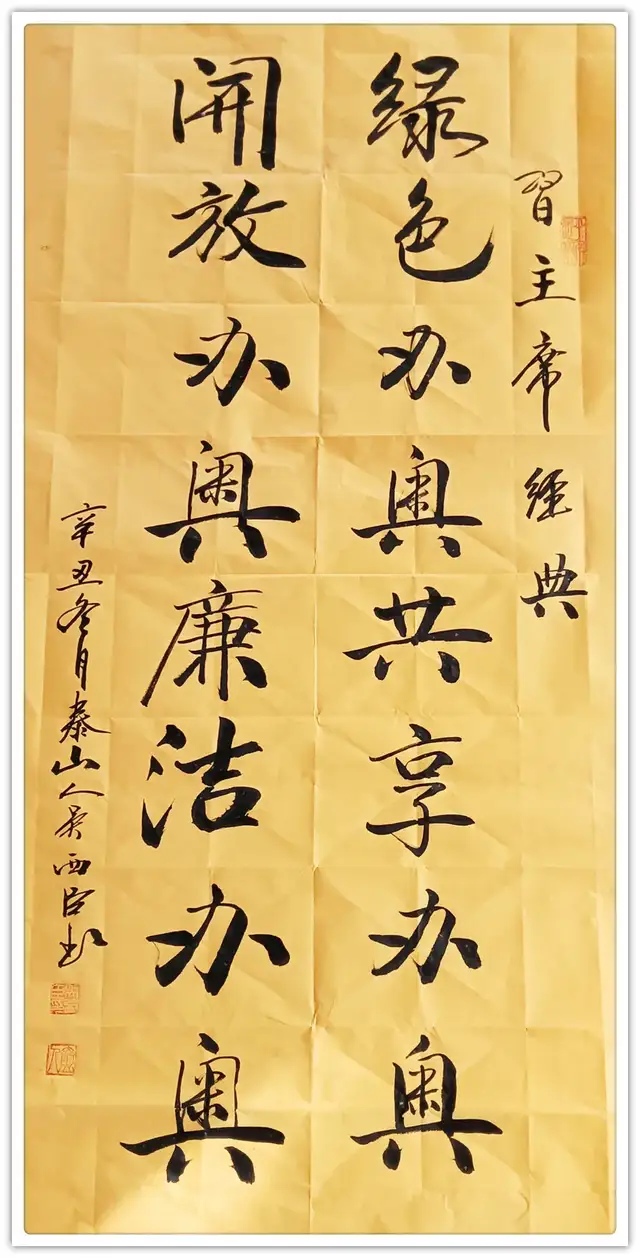 習主席經典
绿色办奥共享办奥
開放办奥廉洁办奥
辛丑冬月泰山人吴西臣书